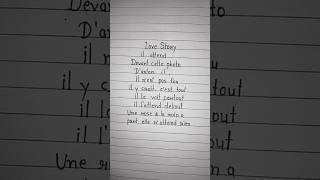 Love Story
il attend
Devant cette photo
D'antan il,
il n'est pas fou
il y croit, c'est tout
il le voit partout
il l'attend debout
Une rose à la main a
part elle n'attend rien